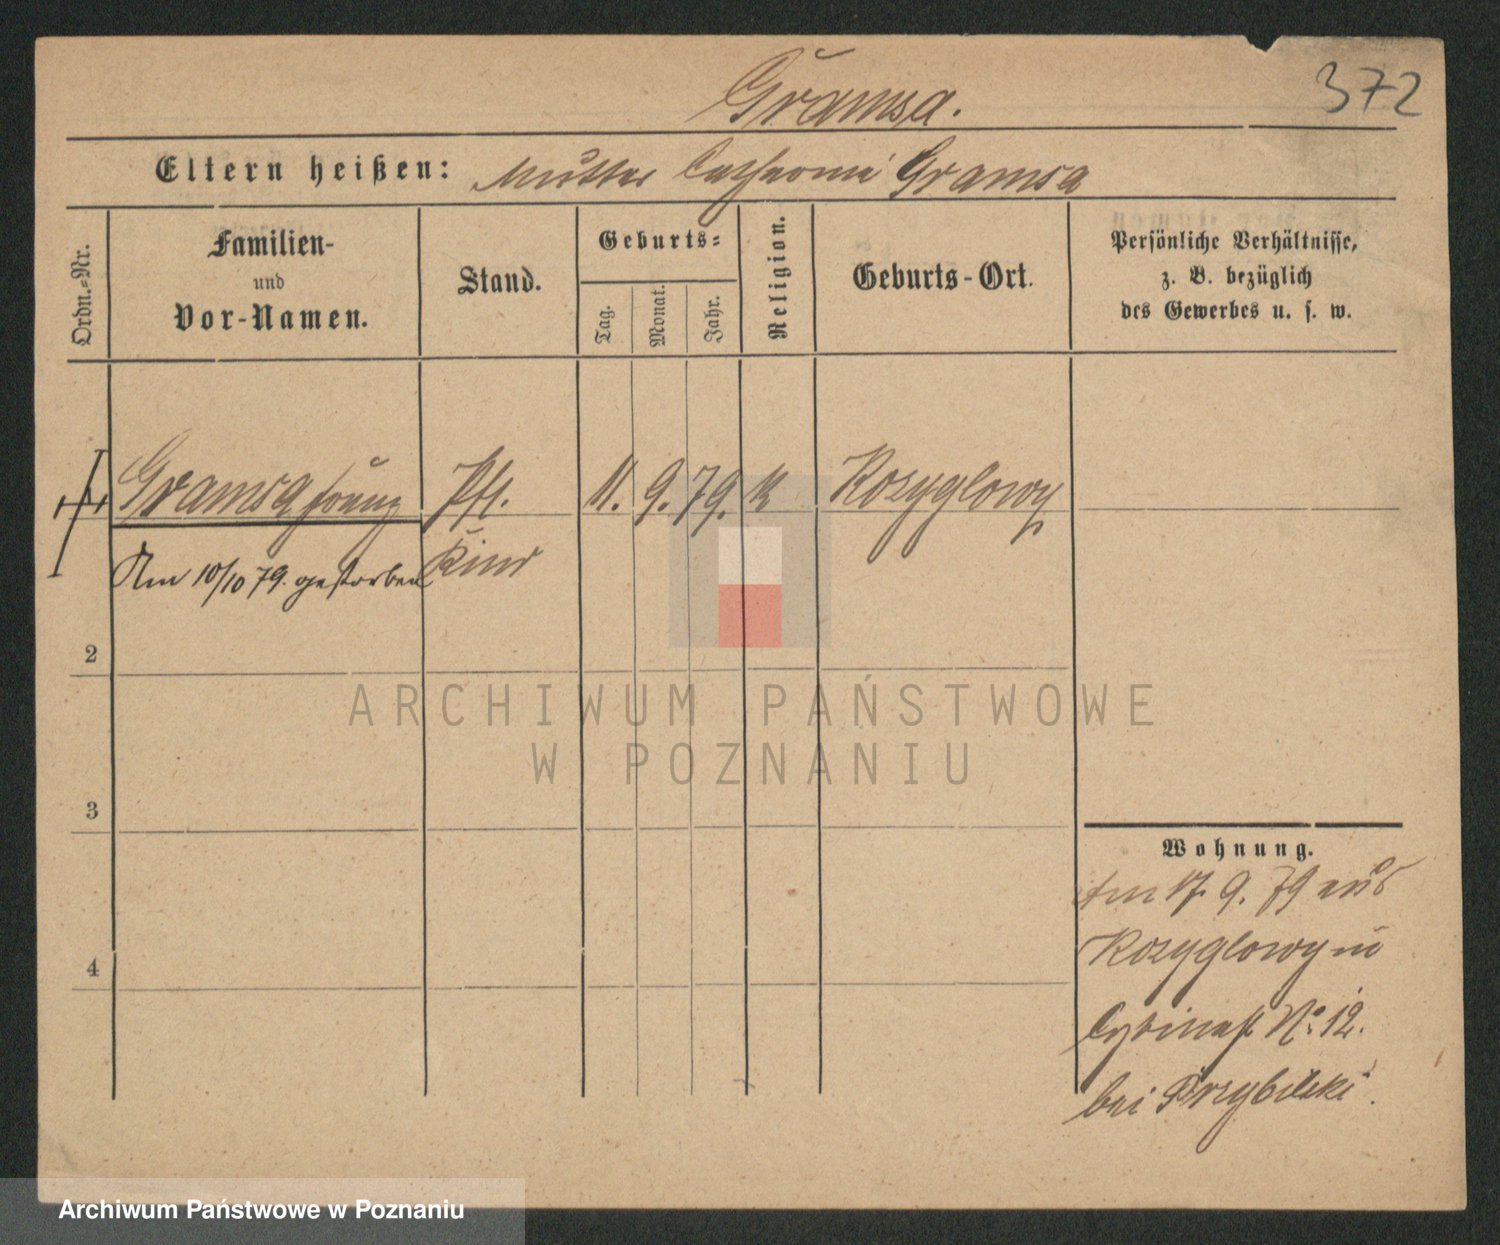 372
Gramsa.
Eltern heißen: Mutter Catharina Gramsa
Ordn.-Nr.
Familien-
und
Vor-Namen.
Stand.
Geburts-
Tag.
Monat.
Jahr.
Religion.
Geburts-Ort.
Persönliche Verhältnisse,
z. B. bezüglich
des Gewerbes u. s. w.
Gramsa Franz Pfl. 11. 9. 79. k Rozyglowy
Kind
Am 10/10 79. gestorben
2
3
4
Wohnung.
Am 17. 9. 79 aus
Rozyglowy in
Cybinast No. 12.
bei Przybilski.
ARCHIWUM PAŃSTWOWE
W POZNANIU
Archiwum Państwowe w Poznaniu